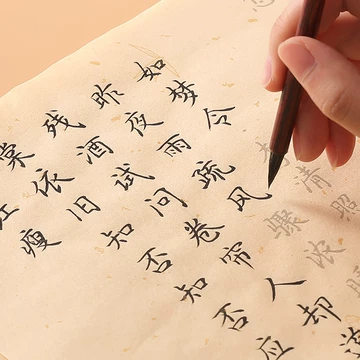 如梦令 李清照
昨夜雨疏风骤浓
残酒试问卷帘人却
棠依旧知否知否应
瘦